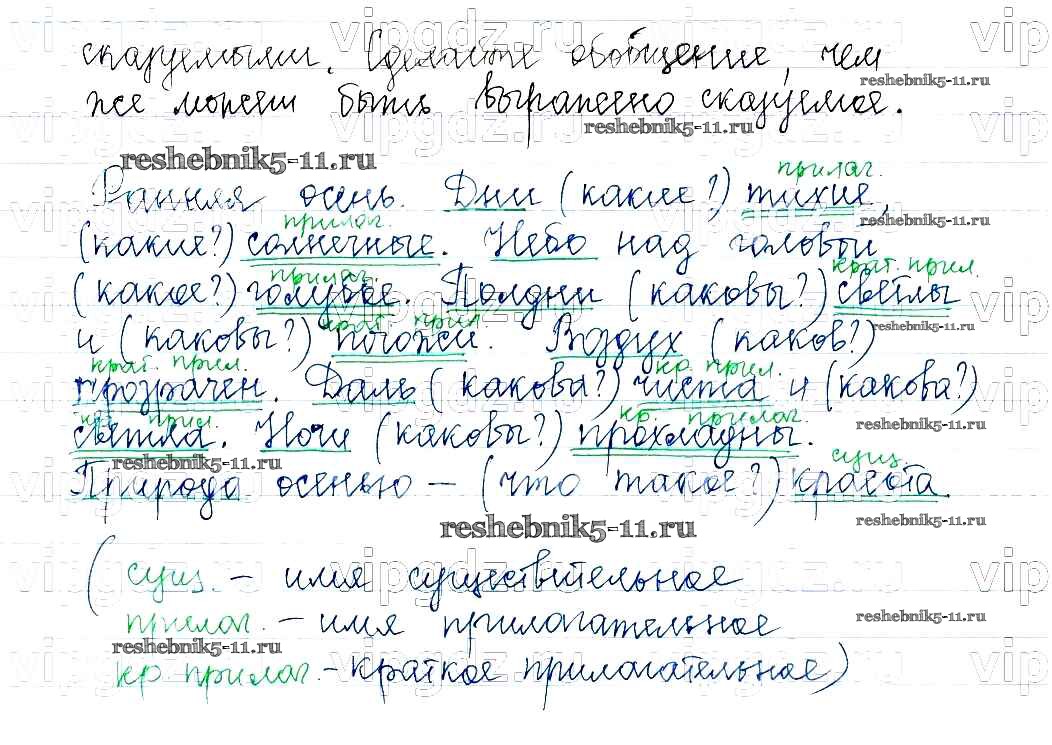 сказуемыми. Сделайте обобщение, чем
же может быть выражено сказуемое.
reshebnik5-11.ru
прилаг.
Ранняя осень. Дни (какие?) тихие,
прилаг.
(какие?) солнечные. Небо над головой
прилаг. крат. прил.
(какое?) голубое. Полдни (каковы?) светлы
крат. прил.
и (каковы?) погожи. Воздух (каков?)
крат. прил. кр. прил.
прозрачен. Даль (какова?) чиста и (какова?)
кр. прил. кр. прилаг.
светла. Ночи (каковы?) прохладны.
сущ.
Природа осенью – (что такое?) красота.
reshebnik5-11.ru
(сущ. – имя существительное
прилаг. – имя прилагательное
reshebnik5-11.ru
кр. прилаг. – краткое прилагательное)